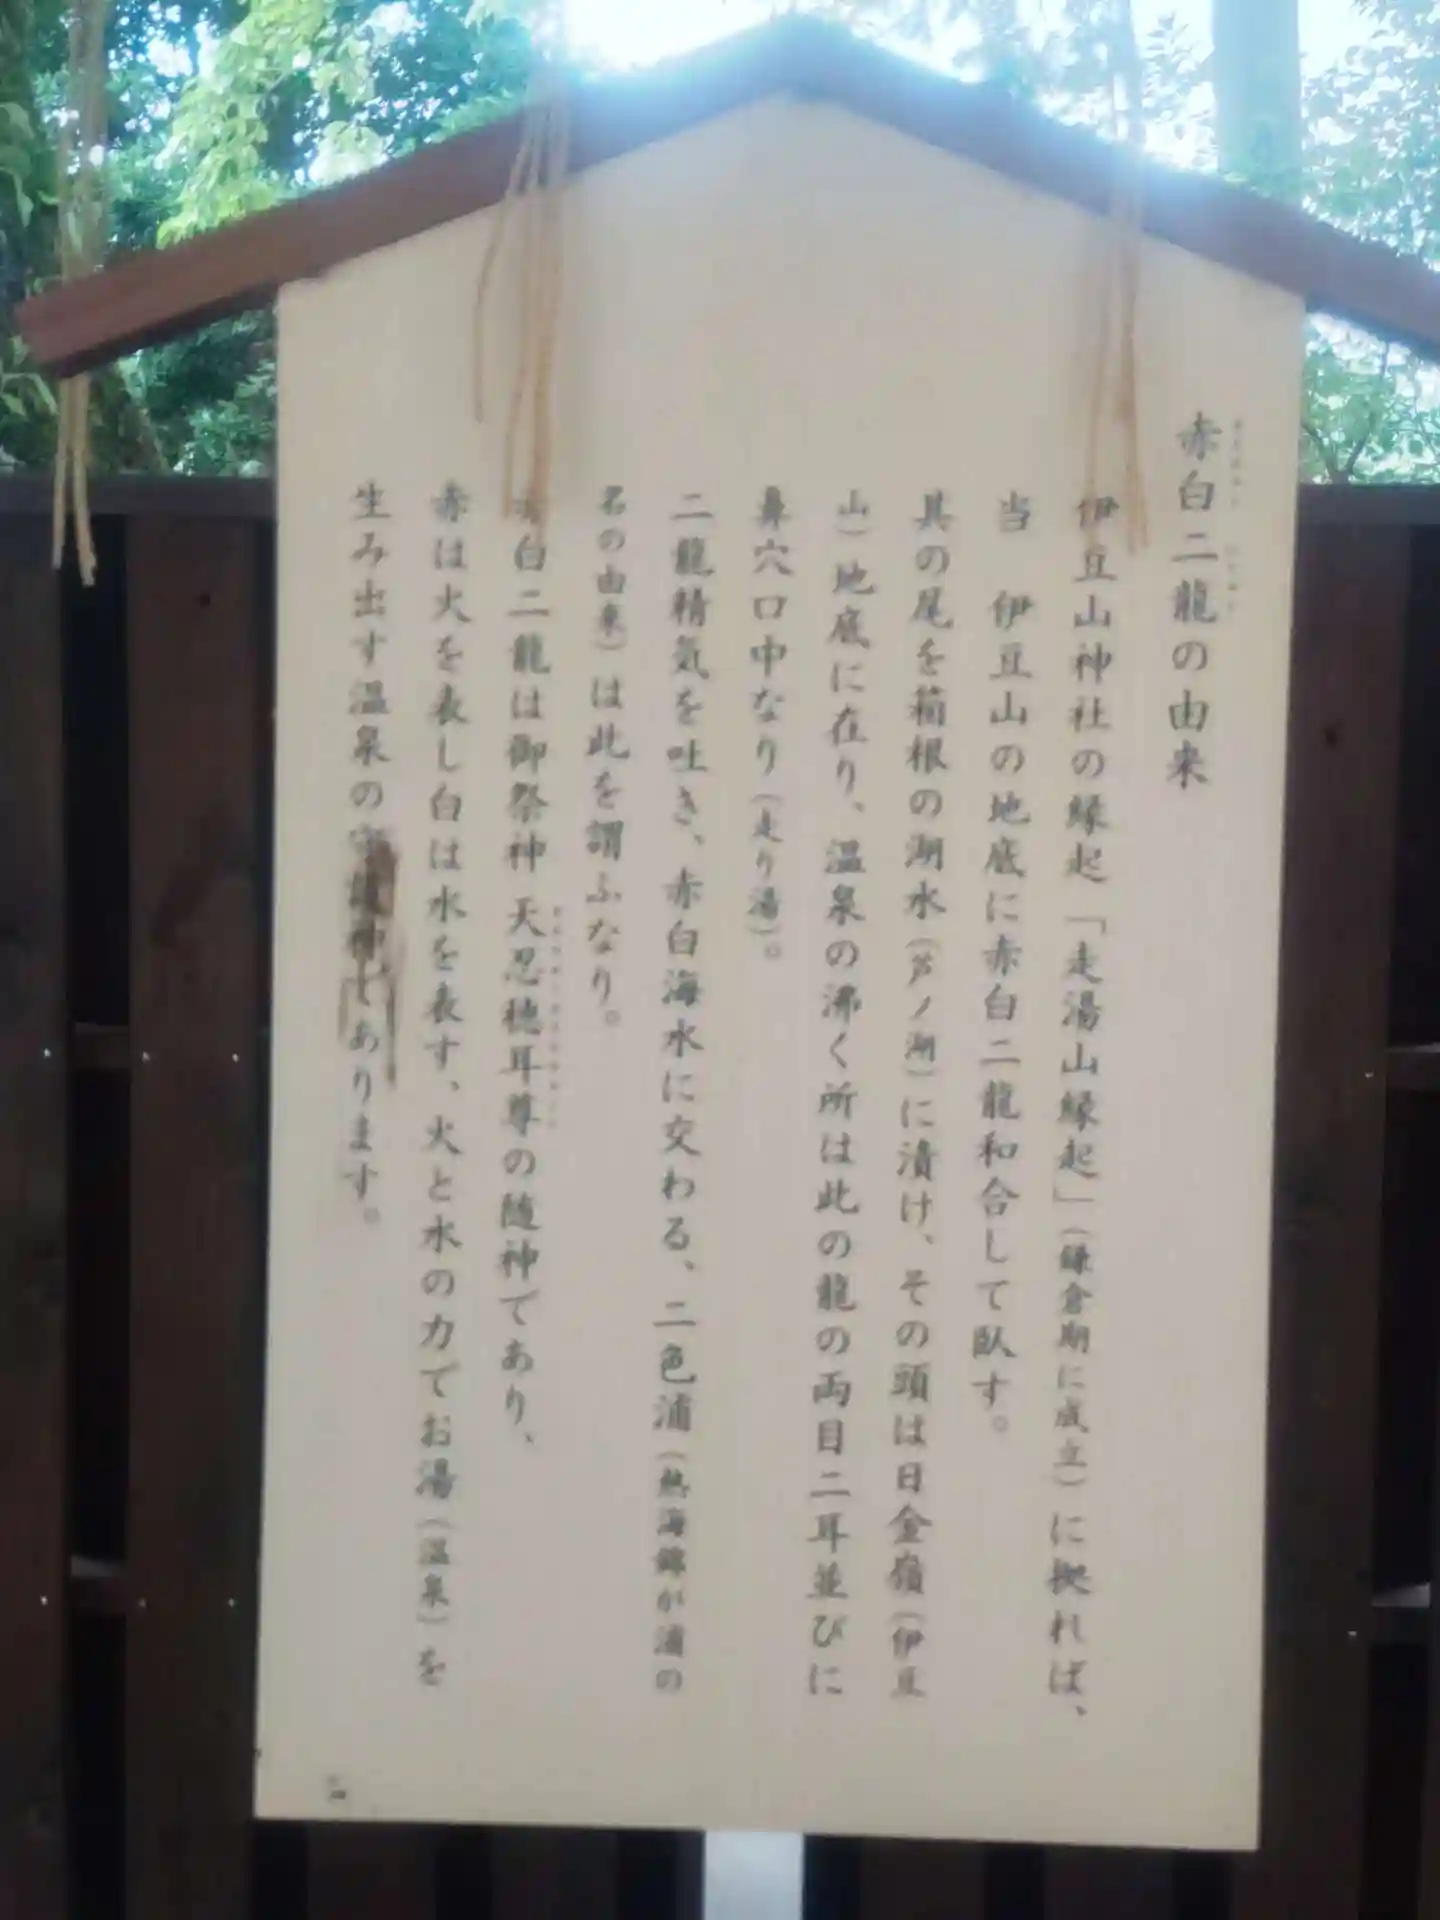 赤白二龍の由来
伊豆山神社の縁起「走湯山縁起」(鎌倉期に成立)に拠れば、
当 伊豆山の地底に赤白二龍和合して臥す。
其の尾を箱根の湖水(芦ノ湖)に漬け、その頭は日金嶺(伊豆
山)地底に在り、温泉の沸く所は此の龍の両目二耳並びに
鼻穴口中なり(走り湯)。
二龍精気を吐き、赤白海水に交わる、二色浦(熱海錦が浦の
名の由来)は此を謂ふなり。
白二龍は御祭神 天忍穂耳尊の随神であり、
赤は火を表し白は水を表す、火と水の力でお湯(温泉)を
生み出す温泉の守護神であります。